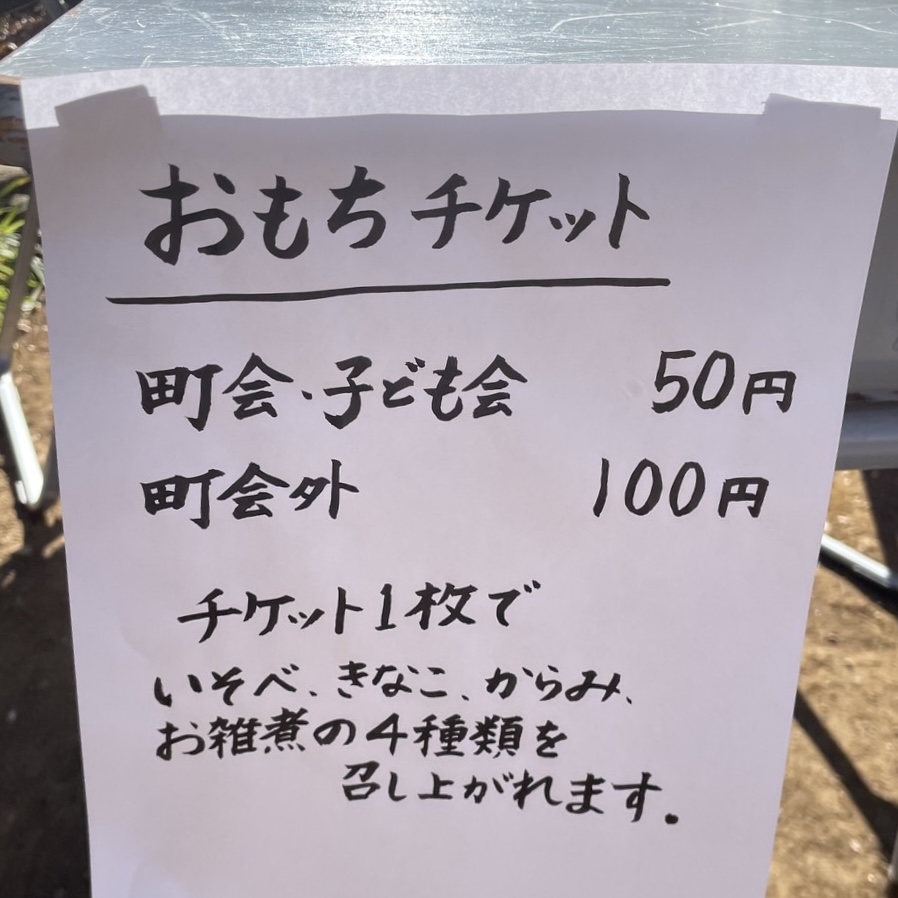 おもちチケット
町会・子ども会 50円
町会外 100円
チケット1枚で
いそべ、きなこ、からみ、
お雑煮の4種類を
召し上がれます。